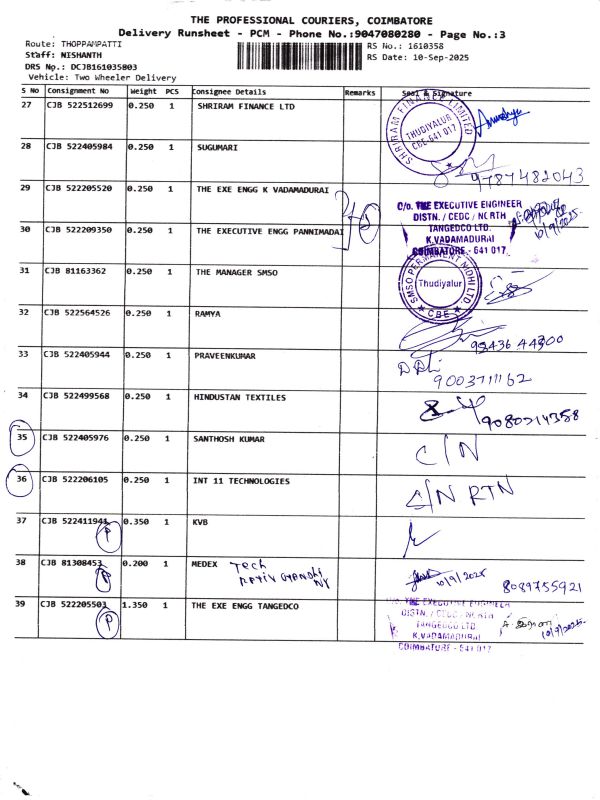 THE PROFESSIONAL COURIERS, COIMBATORE
Delivery Runsheet - PCM - Phone No.:9047080280 - Page No.:3
Route: THOPPAMPATTI
RS No.: 1610358
Staff: NISHANTH
RS Date: 10-Sep-2025
DRS No.: DCJB161035803
Vehicle: Two Wheeler Delivery
S No Consignment No Weight PCS Consignee Details Remarks Seal & Signature
27 CJB 522512699 0.250 1 SHRIRAM FINANCE LTD
SHRIRAM FINANCE LIMITED
THUDIYALUR
CBE-641 017
28 CJB 522405984 0.250 1 SUGUMARI
9787482043
29 CJB 522205520 0.250 1 THE EXE ENGG K VADAMADURAI
C/o. THE EXECUTIVE ENGINEER
DISTN. / CEDC / NORTH
TANGEDCO LTD.
K.VADAMADURAI
COIMBATORE - 641 017
10/9/2025
30 CJB 522209350 0.250 1 THE EXECUTIVE ENGG PANNIMADAI
31 CJB 81163362 0.250 1 THE MANAGER SMSO
SMSO PERMANENT NIDHI LTD.
Thudiyalur
CBE
32 CJB 522564526 0.250 1 RAMYA
9843644300
33 CJB 522405944 0.250 1 PRAVEENKUMAR
9003711162
34 CJB 522499568 0.250 1 HINDUSTAN TEXTILES
9080214358
35 CJB 522405976 0.250 1 SANTHOSH KUMAR
C/N
36 CJB 522206105 0.250 1 INT 11 TECHNOLOGIES
C/N RTN
37 CJB 522411941 0.350 1 KVB
P
38 CJB 81308453 0.200 1 MEDEX Tech
P
10/9/2025
8089755921
39 CJB 522205503 1.350 1 THE EXE ENGG TANGEDCO
P
C/o. THE EXECUTIVE ENGINEER
DISTN. / CEDC / NORTH
TANGEDCO LTD
K.VADAMADURAI
COIMBATORE - 641 017
10/9/2025